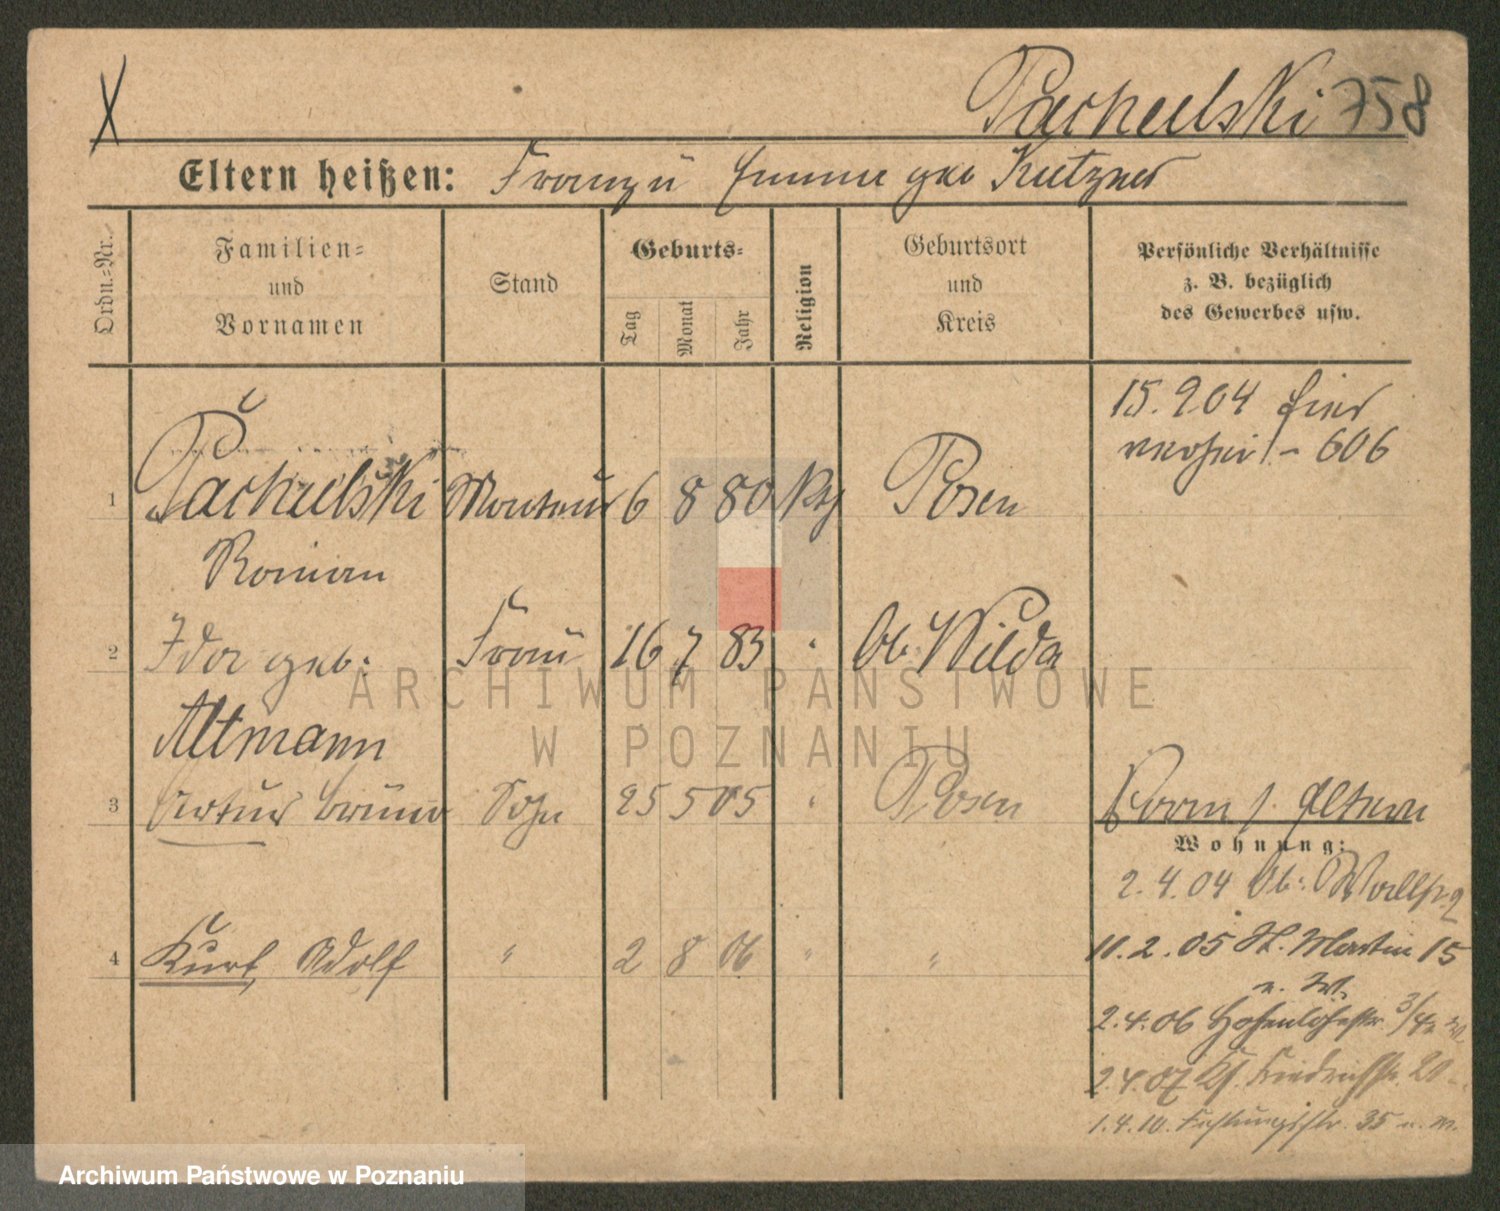 Pachulski 758
Eltern heißen: Franz u Emma geb Kutzner
Ordn.=Nr.
Familien=
und
Vornamen
Stand
Geburts=
Tag
Monat
Jahr
Religion
Geburtsort
und
Kreis
Persönliche Verhältnisse
z. B. bezüglich
des Gewerbes usw.
15.9 04 hier
verheir. - 606
1 Pachulski Monteur 6 8 80 Kth Posen
Roman
2 Ida geb: Frau 16 7 83 " Ob. Wilda
Altmann
3 Artur Bruno Sohn 25 5 05 " Posen
Vorm s. Eltern
Wohnung:
2.4.04 Ob: Wallstr. 2
4 Kurt, Adolf " 2 8 06 " "
11.2.05 St. Martin 15
2.4.06 Hohenlohestr. 3/4
2.4.07 Kl. Friedrichstr. 20
1.4.10. Festungsstr. 35
ARCHIWUM PAŃSTWOWE
W POZNANIU
Archiwum Państwowe w Poznaniu